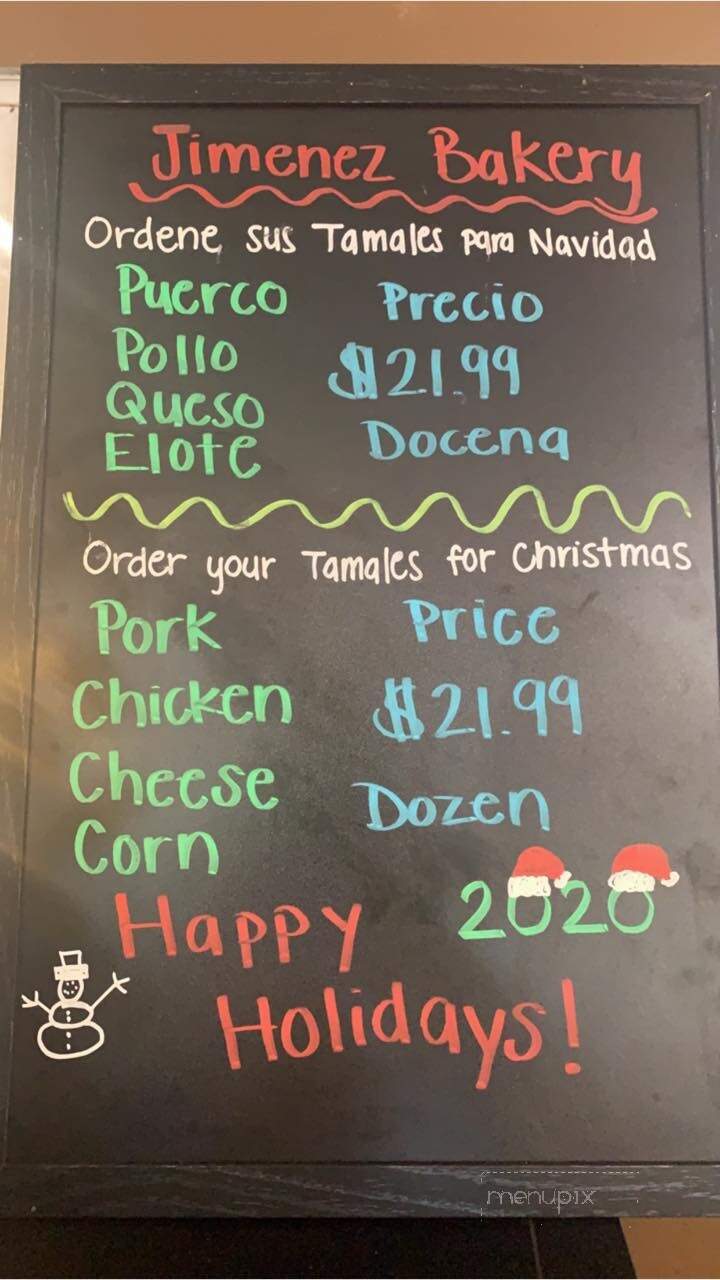 Jimenez Bakery
Ordene sus Tamales para Navidad
Puerco
Pollo
Queso
Elote
Precio
$21.99
Docena
Order your Tamales for Christmas
Pork
Chicken
Cheese
Corn
Price
$21.99
Dozen
2020
Happy
Holidays!
menupix